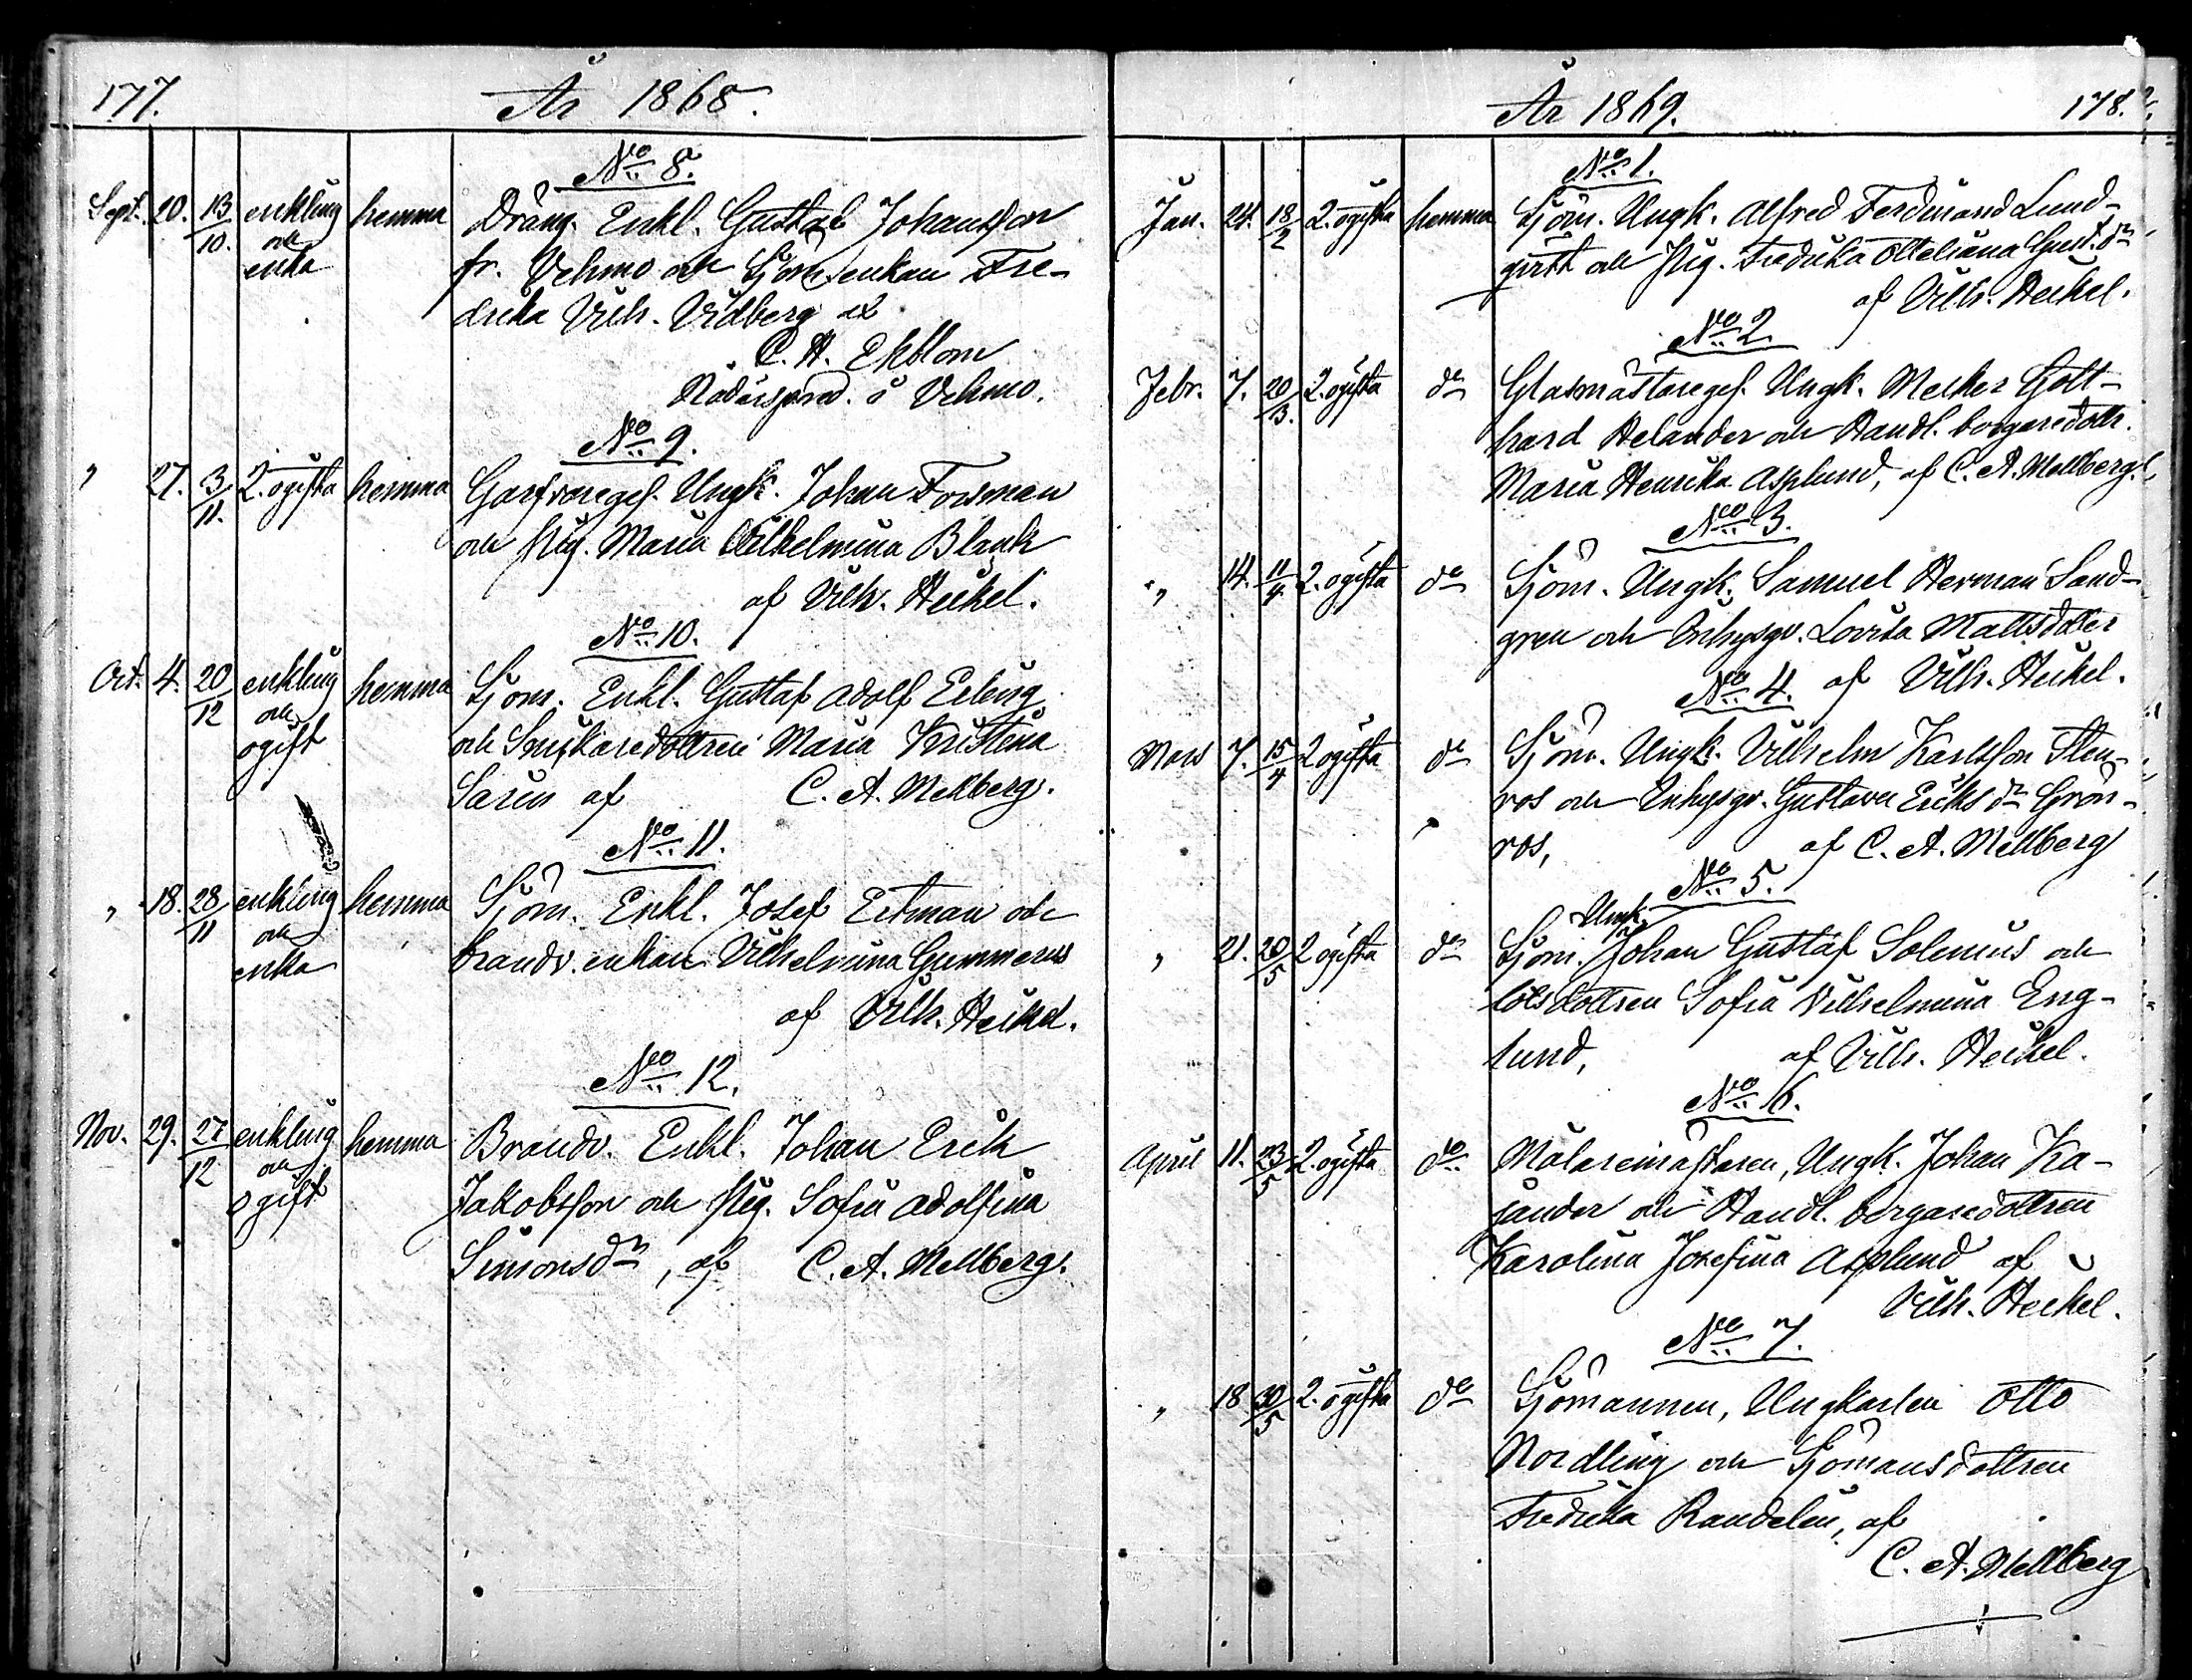 177. År 1868.
No 8.
Sept. 20. 13/10. enkling hemma Dräng. Enkl. Gustaf Johansson
och fr. Vehmo och Sjöm.enkan Fre-
enka drika Vilh. Vidberg af
C. A. Ekblom
Nådårspred. i Vehmo.
No 9.
" 27. 3/11. 2. ogifta hemma Garfvareges. Ungk. Johan Forsman
och Pig. Maria Vilhelmina Blank
af Vilh. Heikel.
No 10.
Oct. 4. 20/12 enkling hemma Sjöm. Enkl. Gustaf Adolf
och och Snickaredottren Maria Kristina
ogift Sarin af C. A. Mellberg.
No 11.
" 18. 28/11 enkling hemma Sjöm. Enkl. Josef Ertman och
och brandv. enkan Vilhelmina Gummerus
enka af Vilh. Heikel.
No 12.
Nov. 29. 27/12 enkling hemma Brandv. Enkl. Johan Erik
och Jakobsson och Pig. Sofia Adolfina
ogift Simonsdr, af C. A. Mellberg.
År 1869. 178.
No 1.
Jan. 24. 18/2 2. ogifta hemma Sjöm. Ungk. Alfred Ferdinand Lund-
qvist och Pig. Fredrika Otteliana Gust.dr
af Vilh. Heikel.
No 2.
Febr. 7. 20/3. 2. ogifta do Glasmästareges. Ungk. Meker Gott-
hard Helander och Handl. borgaredottr.
Maria Henrika Asplund, af C. A. Mellberg.
No 3.
" 14. 11/4. 2. ogifta do Sjöm. Ungk. Samuel Herman Sand-
gren och Inhysqv. Lovisa Mattsdotter
af Vilh. Heikel.
No 4.
Mars 7. 15/4 2 ogifta do Sjöm. Ungk. Vilhelm Karlsson Sten-
ros och Inhysqv. Gustava Eriksdr Grön-
ros, af C. A. Mellberg
No 5.
Ungk.
" 21. 20/5 2 ogifta do Sjöm. Johan Gustaf Solenius och
lotsdottren Sofia Vilhelmina Eng-
lund, af Vilh. Heikel.
No 6.
April 11. 23/5 2. ogifta do Målaremästaren, Ungk. Johan Ka-
jander och Handl. borgaredottren
Karolina Josefina Asplund af
Vilh. Heikel.
No 7.
" 18 30/5 2. ogifta do Sjömannen, Ungkarlen Otto
Nordling och Sjömansdottren
Fredrika Randelin, af
C. A. Mellberg